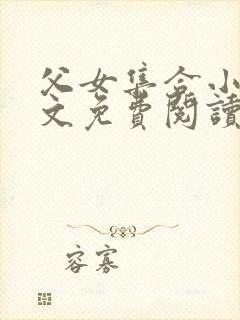 父女集合小
文免費閱讀
容寡